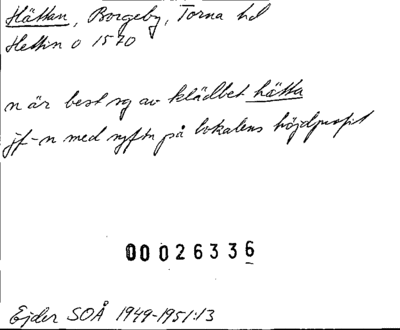 Hättan, Borgeby, Torna hd
Hettin o 1570
n är best sg av klädbet hätta
jf-n med syftn på lokalens höjdprofil
00026336
Ejder SOÅ 1949-1951:13